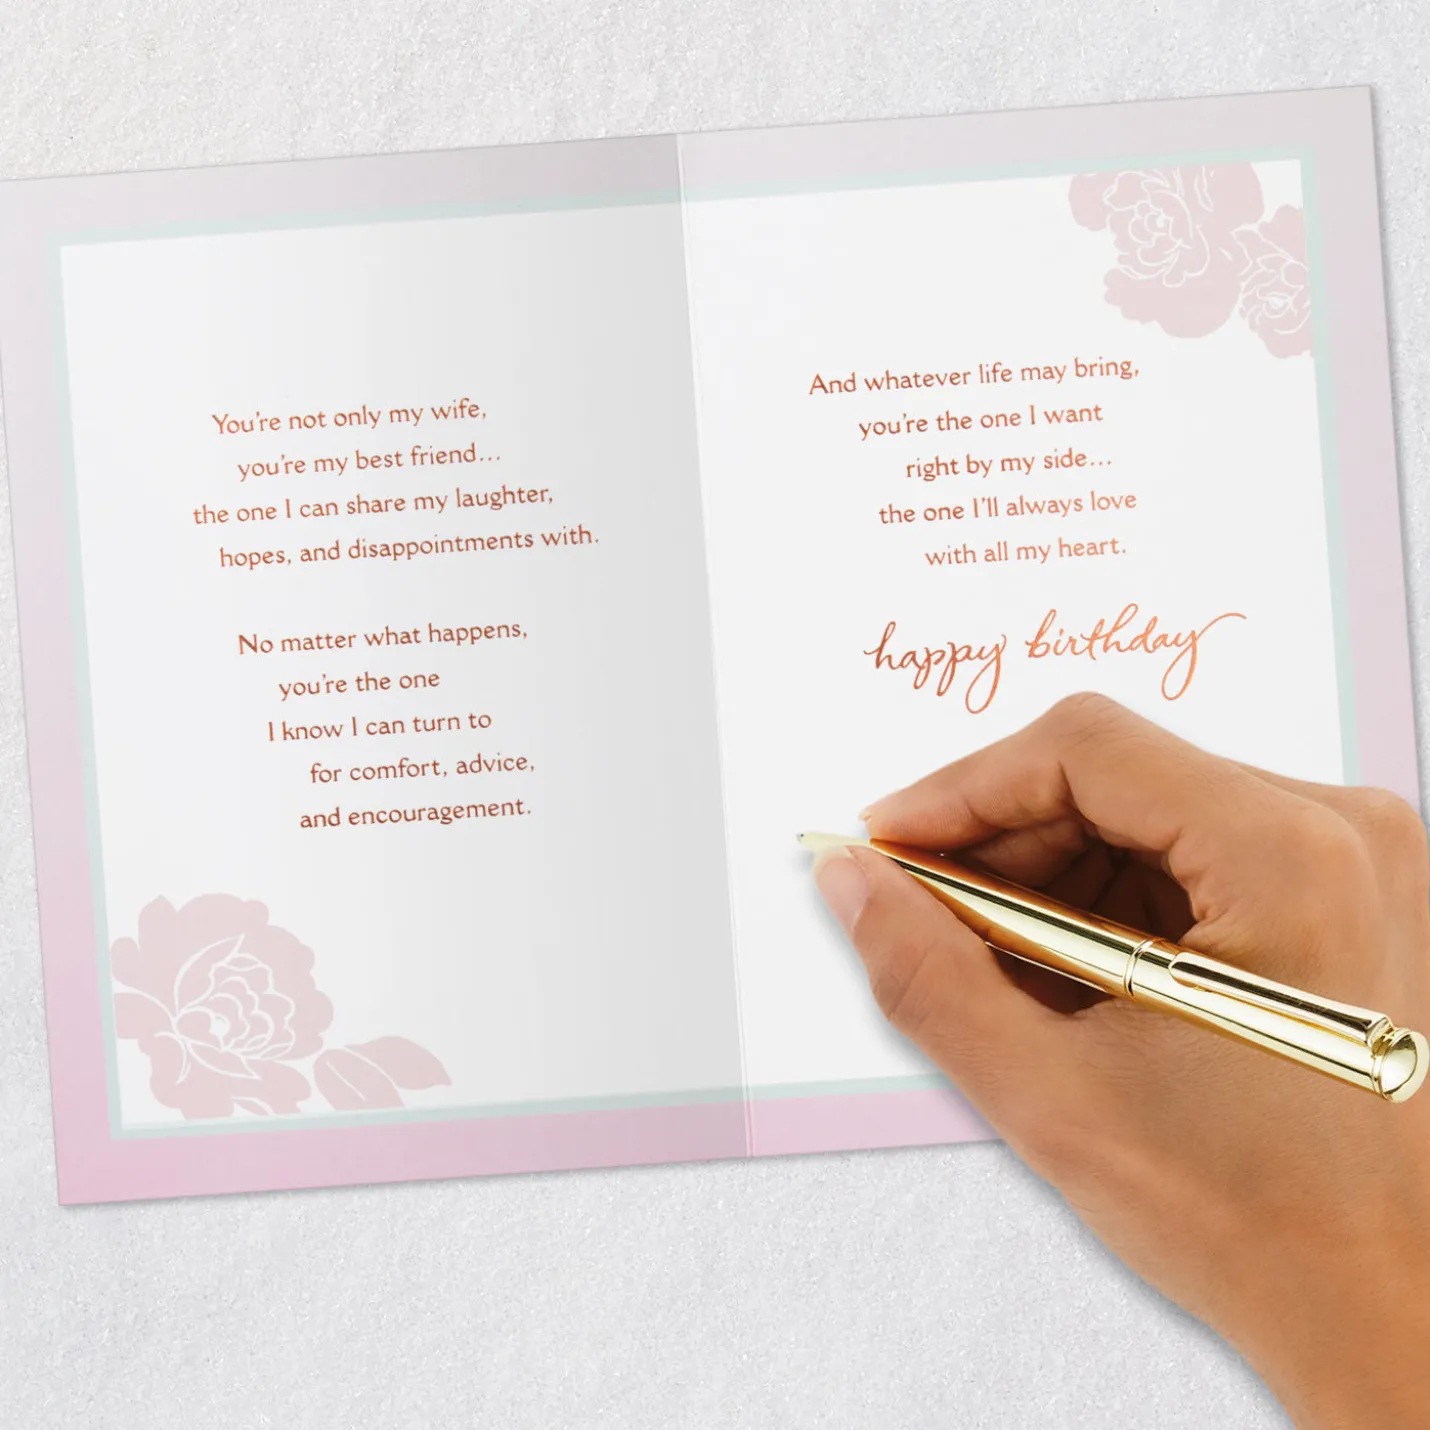 You're not only my wife,
you're my best friend...
the one I can share my laughter,
hopes, and disappointments with.
No matter what happens,
you're the one
I know I can turn to
for comfort, advice,
and encouragement.
And whatever life may bring,
you're the one I want
right by my side...
the one I'll always love
with all my heart.
happy birthday